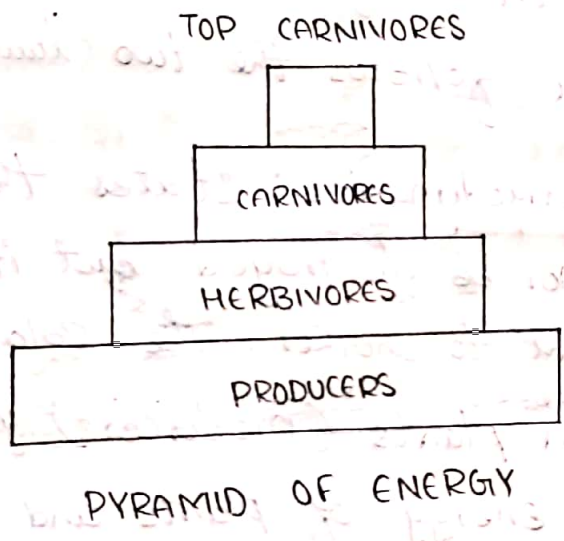 TOP CARNIVORES
CARNIVORES
HERBIVORES
PRODUCERS
PYRAMID OF ENERGY